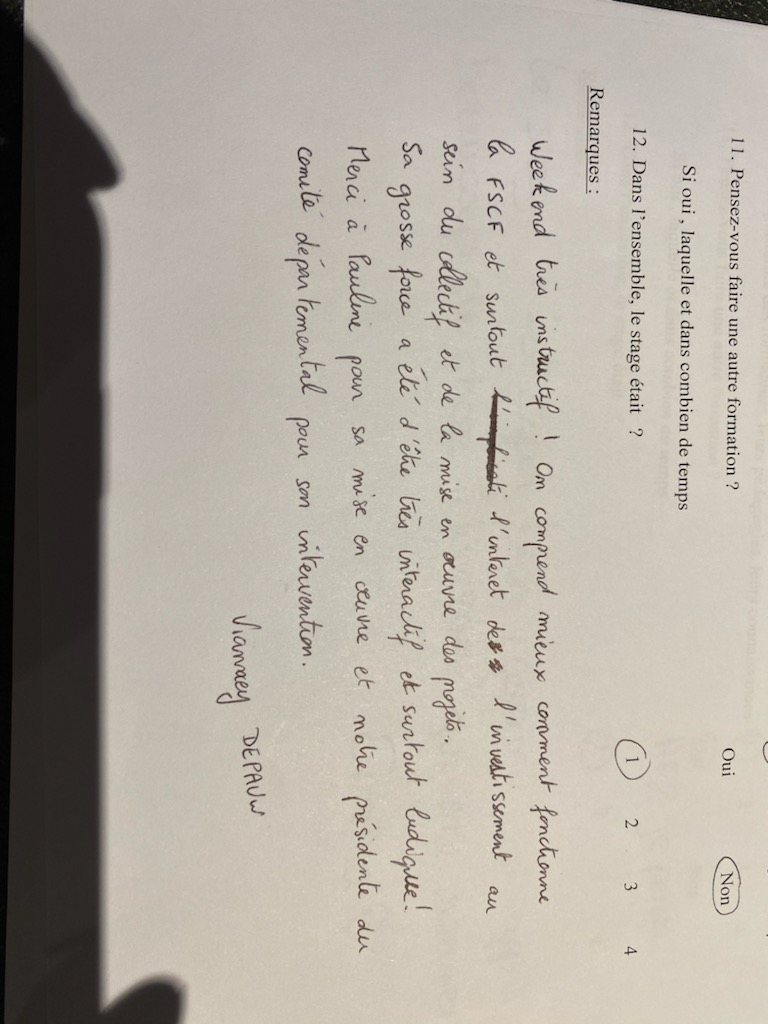 11. Pensez-vous faire une autre formation ? Oui Non
Si oui , laquelle et dans combien de temps
12. Dans l'ensemble, le stage était ? 1 2 3 4
Remarques :
Weekend très instructif ! On comprend mieux comment fonctionne
la FSCF et surtout l'interet de l'investissement au
sein du collectif et de la mise en œuvre des projets.
Sa grosse force a été d'être très interactif et surtout ludique !
Merci à Pauline pour sa mise en œuvre et notre présidente du
comité départemental pour son intervention.
DEPAUW